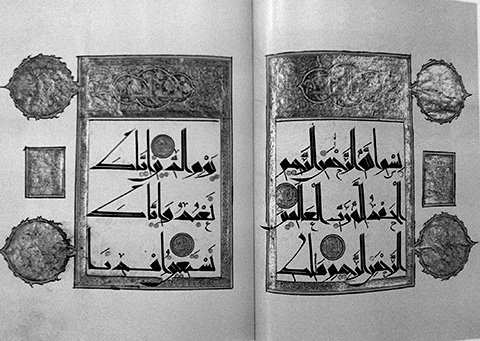 بسم الله الرحمن الرحيم
الحمد لله رب العالمين
الرحمن الرحيم ملك
يوم الدين اياك
نعبد واياك
نستعين اهد نا